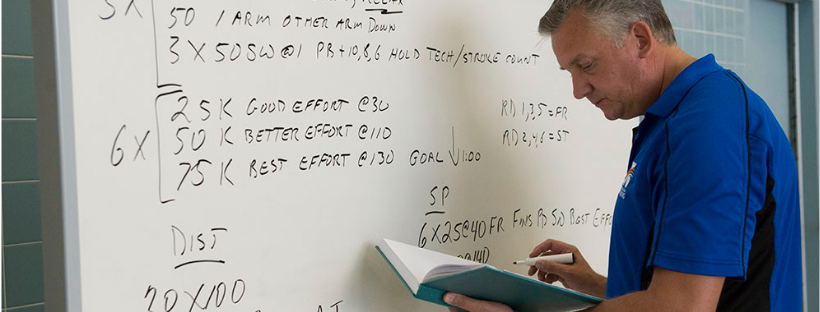 3X
RELAX
50 1 ARM OTHER ARM DOWN
3 X 50 SW @1 PB+10,8,6 HOLD TECH/STROKE COUNT
6X
25 K GOOD EFFORT @30
50 K BETTER EFFORT @110
75 K BEST EFFORT @130 GOAL ↓1:00
RD 1,3,5=FR
RD 2,4,6=ST
SP
6X25@40 FR FINS RD 50 BEST EFF
DIST
20X100